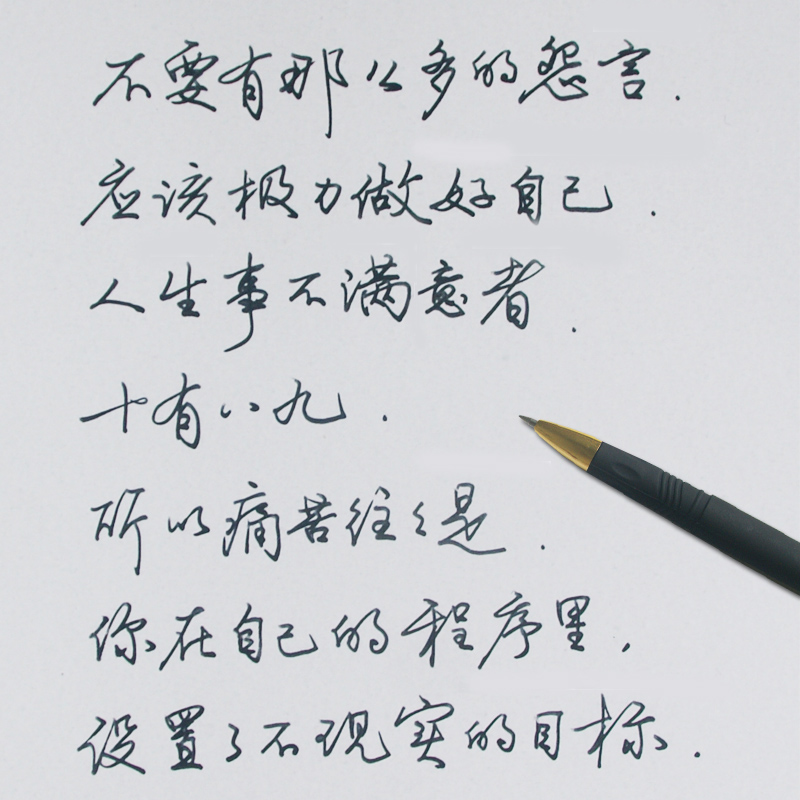 不要有那么多的怨言.
应该极力做好自己.
人生事不满意者.
十有八九.
所以痛苦往々是.
你在自己的程序里,
设置了不现实的目标.